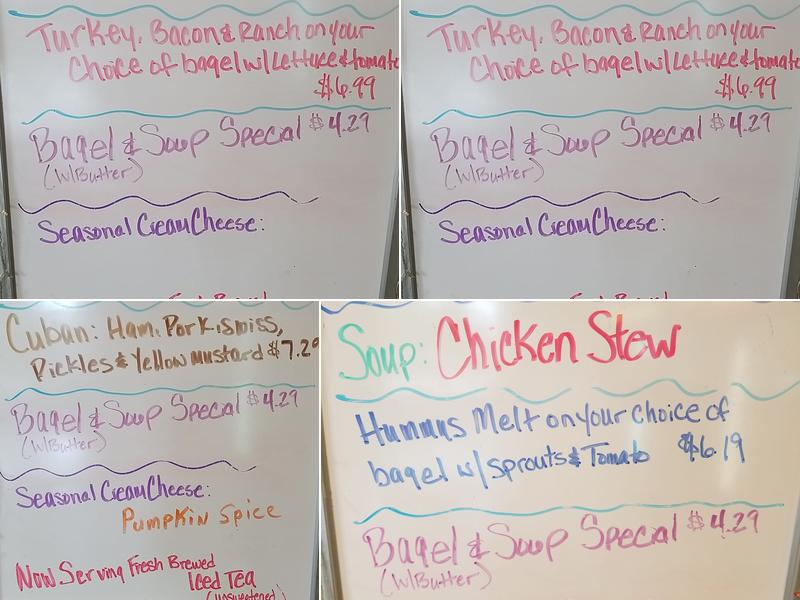 Turkey, Bacon & Ranch on your
Choice of bagel w/ Lettuce & tomato
$6.99
Bagel & Soup Special $4.29
(w/Butter)
Seasonal Cream Cheese:
Turkey, Bacon & Ranch on your
Choice of bagel w/ Lettuce & tomato
$6.99
Bagel & Soup Special $4.29
(w/Butter)
Seasonal Cream Cheese:
Cuban: Ham, Pork, swiss,
Pickles & Yellow mustard $7.29
Bagel & Soup Special $4.29
(w/Butter)
Seasonal Cream Cheese:
Pumpkin Spice
Now Serving Fresh Brewed
Iced Tea
(unsweetened)
Soup: Chicken Stew
Hummus Melt on your choice of
bagel w/ sprouts & Tomato $6.19
Bagel & Soup Special $4.29
(w/Butter)